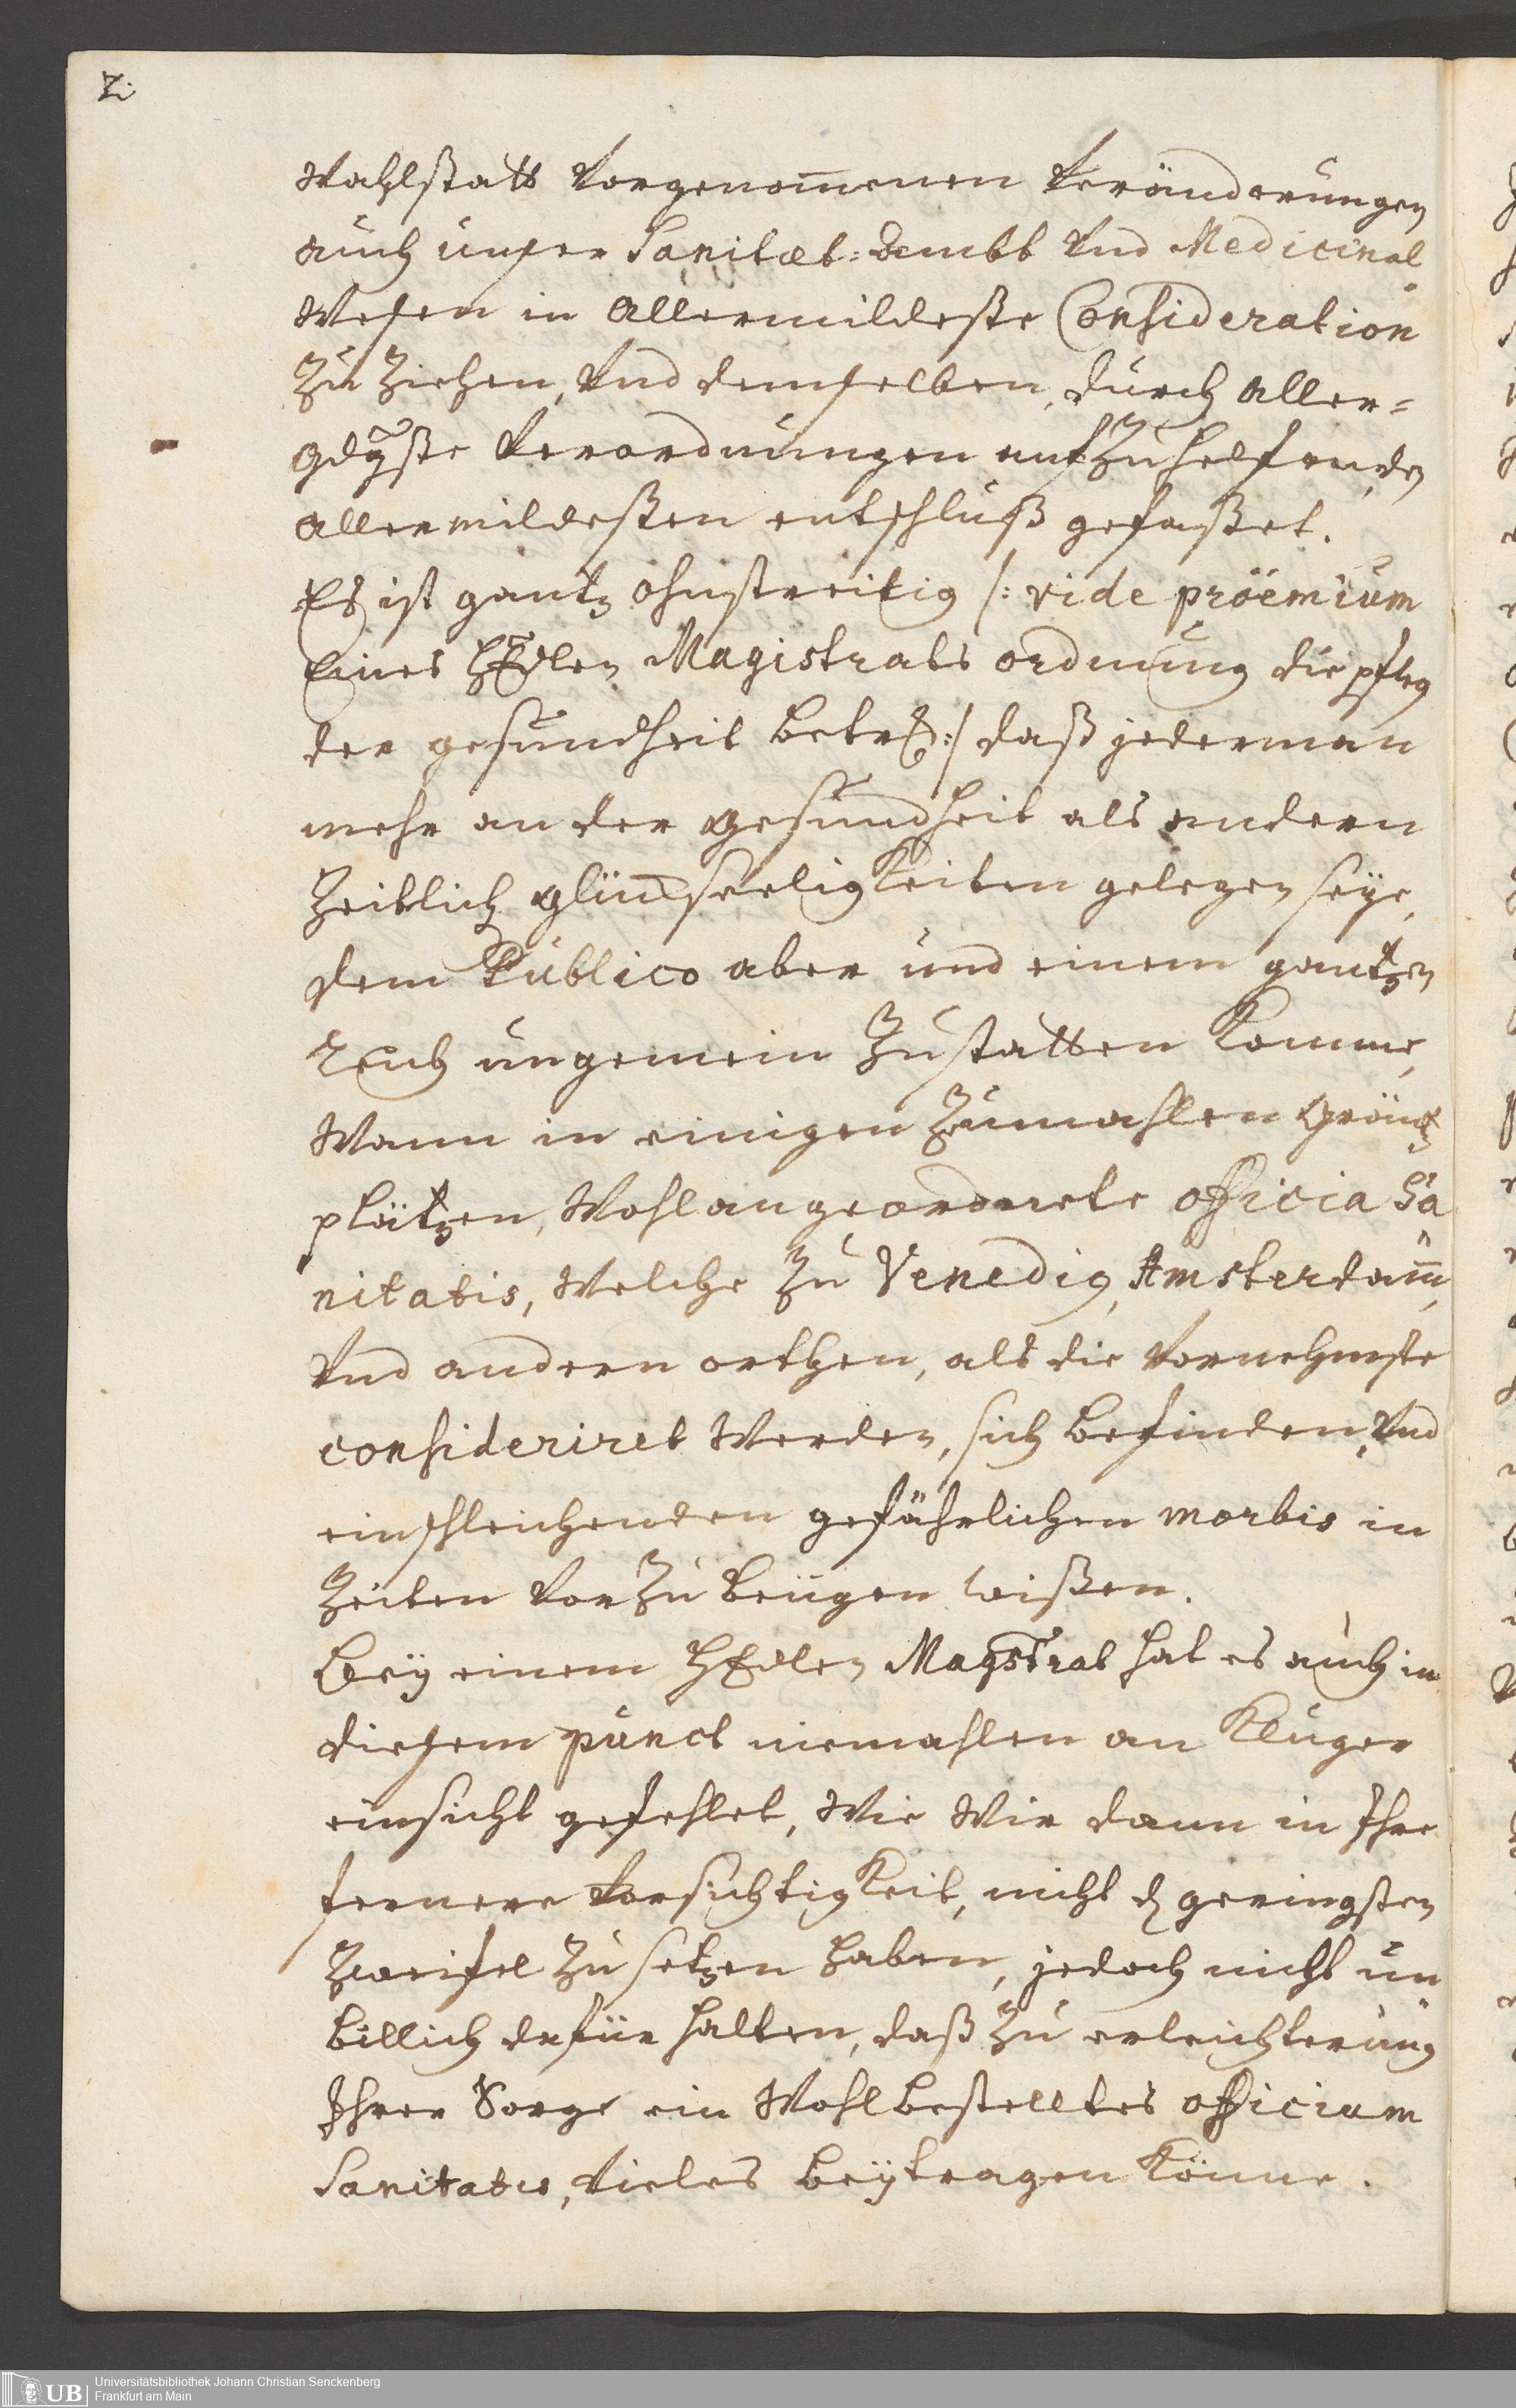 2.
Wahlstatt Vorgenom̅enen Veränderungen
auch unser Sanitæt-Ambt Vnd Medicinal
Wesen in Allermildeste Consideration
zu ziehen, Vnd demselben, durch Aller=
gdgste Verordnungen aufzuhelfen, den
Allermildesten entschluß gefaßet.
Es ist gantz ohnstreitig /: vide pröemium
Eines HEdlen Magistrats ordnung die pfleg
der gesundheit betrf: / daß jederman
mehr an der gesundheit als andern
Zeitlich glückseeligkeiten gelegen seye,
dem Publico aber und einem gantzen
Reich ungemein zustatten komme,
Wann in einigen zumahlen Gräntz
plätzen, Wohlangeordnete officia Sa
nitatis, Welche zu Venedig, Amsterdam̅,
Vnd andern orthen, als die Vornehmste
consideriret Werden, sich befinden, Vnd
einschleichenden gefährlichen morbis in
Zeiten Vorzubeugen wißen.
Bey einem HEdlen Magstrat hat es auch in
diesem punct niemahlen an Kluger
einsicht gefehlet, Wie Wir dann in Ihre
fernere Vorsichtigkeit, nicht d geringsten
Zweifel zu setzen haben, jedoch nicht un
billich dafür halten, daß zu erleichterung
Ihrer Sorge ein Wohlbestelltes officium
Sanitatis, Vieles beytragen könne.
UB Universitätsbibliothek Johann Christian Senckenberg
Frankfurt am Main